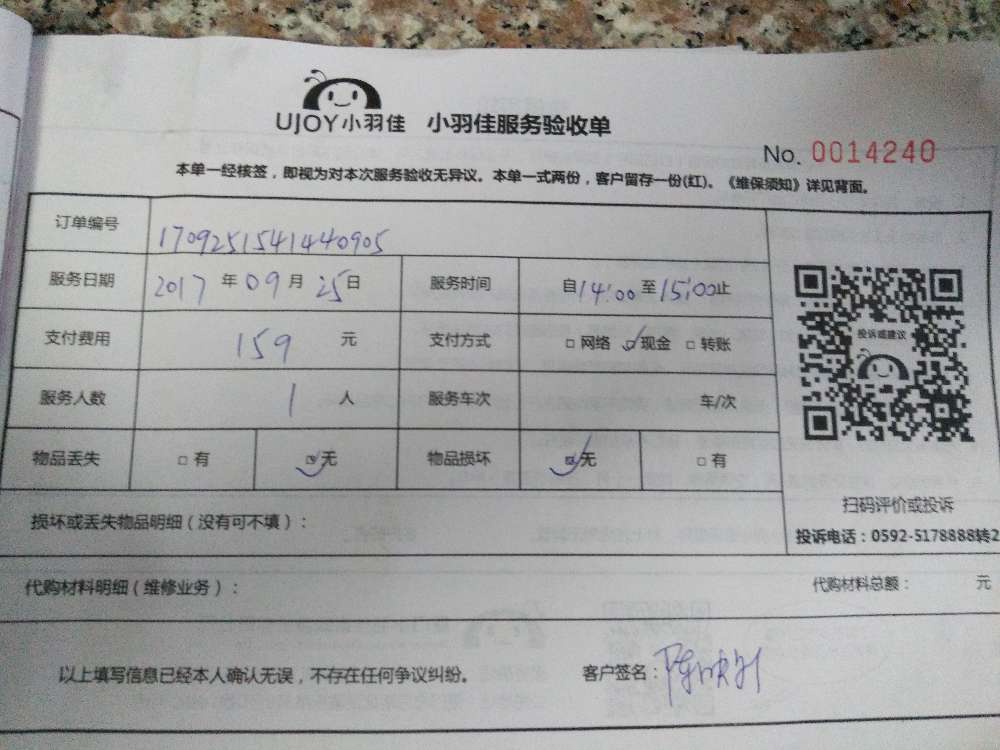 UJOY小羽佳 小羽佳服务验收单
No. 0014240
本单一经核签，即视为对本次服务验收无异议。本单一式两份，客户留存一份(红)。《维保须知》详见背面。
订单编号 1709251541440905
服务日期 2017 年 09 月 25 日 服务时间 自14:00至15:00止
支付费用 159 元 支付方式 □网络 ☑现金 □转账
服务人数 1 人 服务车次 车/次
物品丢失 □有 ☑无 物品损坏 ☑无 □有
投诉或建议
扫码评价或投诉
投诉电话：0592-5178888转2
损坏或丢失物品明细（没有可不填）：
代购材料明细（维修业务）： 代购材料总额： 元
以上填写信息已经本人确认无误，不存在任何争议纠纷。 客户签名：